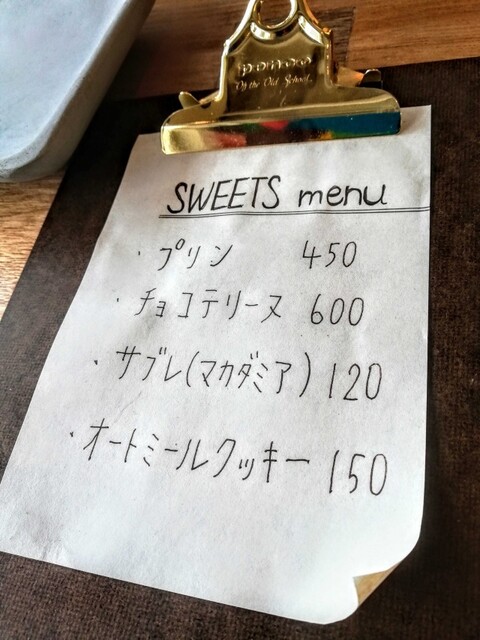 ponoo
By the Old School.
SWEETS menu
・プリン 450
・チョコテリーヌ 600
・サブレ(マカダミア) 120
・オートミールクッキー 150